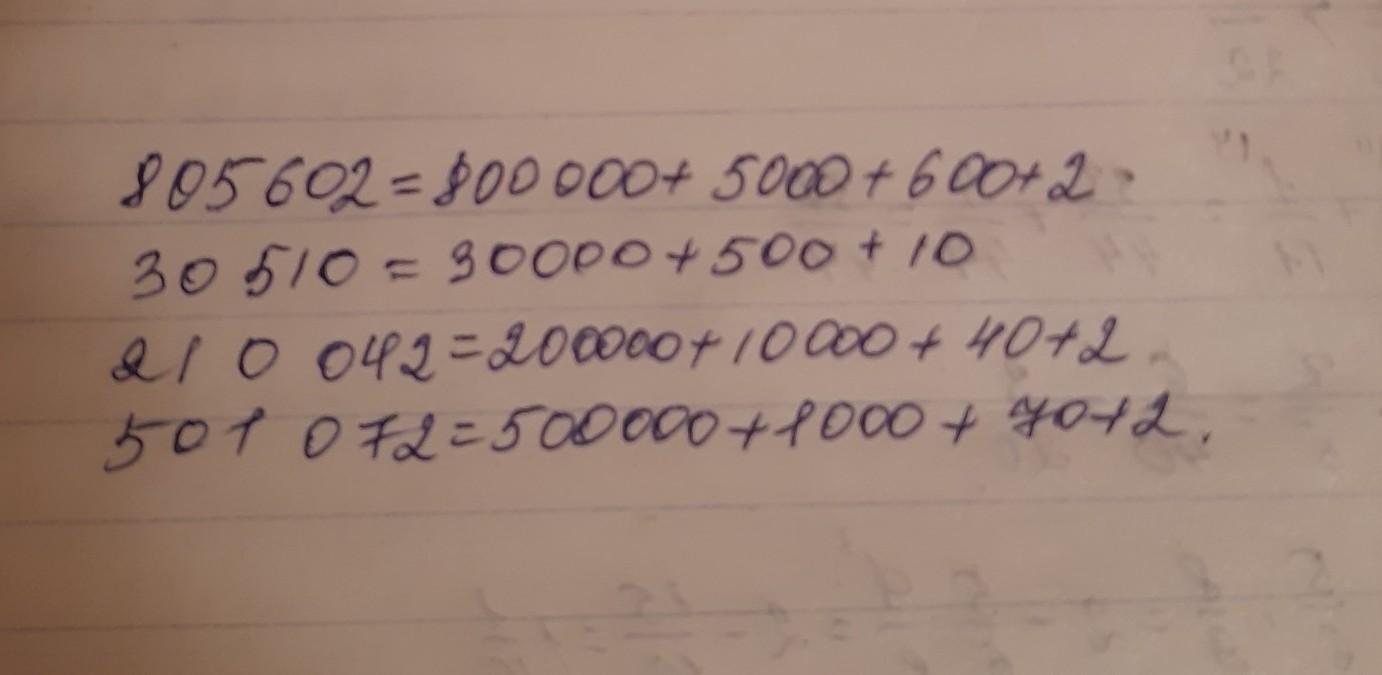 805 602 = 800 000 + 5000 + 600 + 2.
30 510 = 30000 + 500 + 10
210 042 = 200000 + 10000 + 40 + 2
501 072 = 500000 + 1000 + 70 + 2.